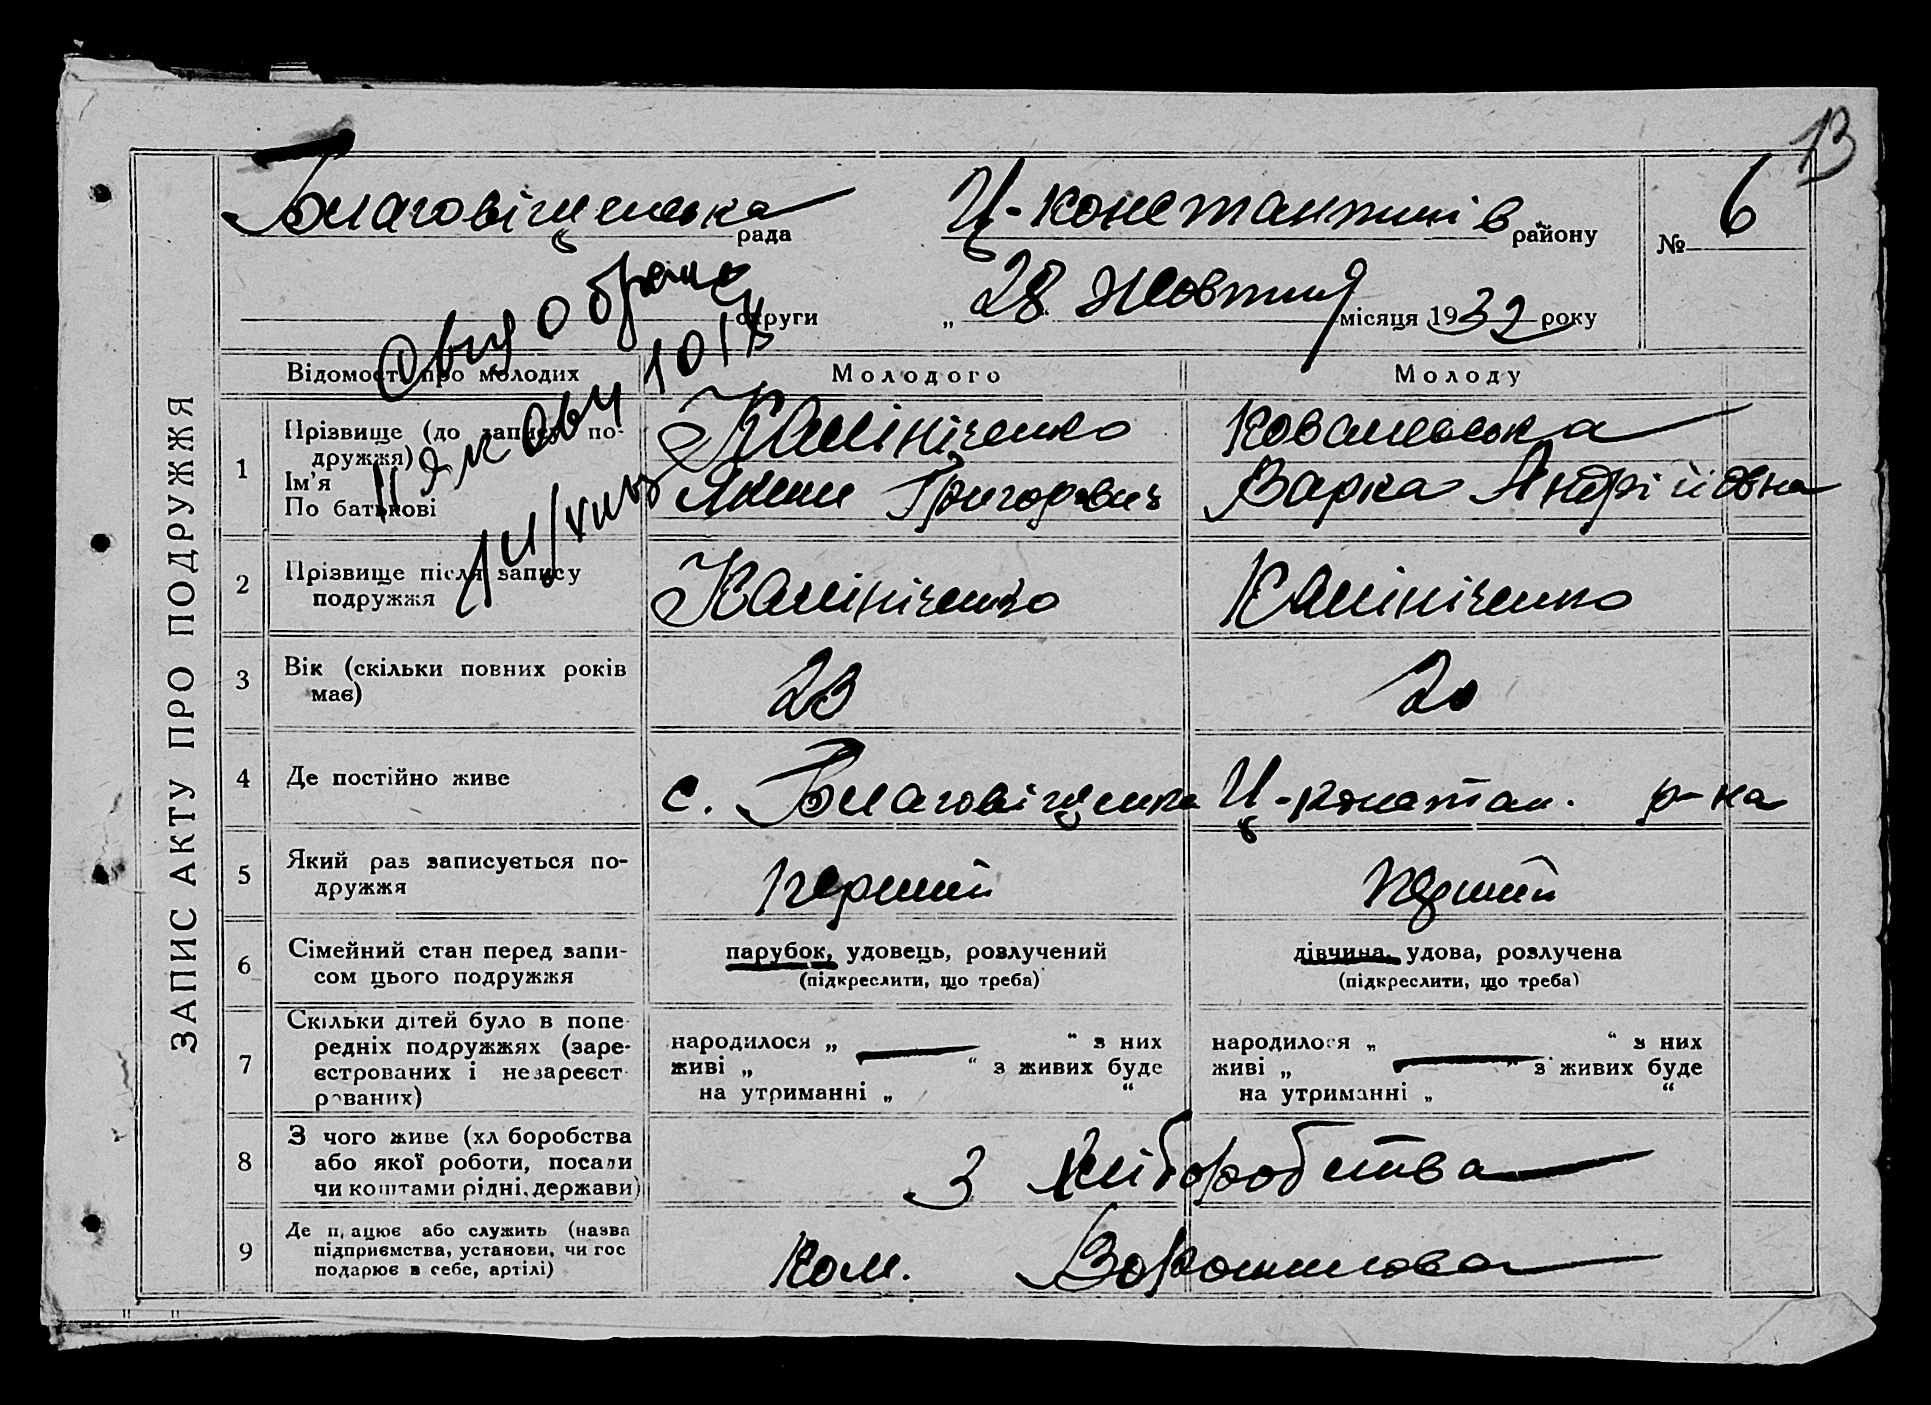 13
Благовіщенська рада Ц-константинів району № 6
округи „ 28 жовтня місяця 1932 року
Відомості про молодих Молодого Молоду
ЗАПИС АКТУ ПРО ПОДРУЖЖЯ
1 Прізвище (до запису по-
дружжя)
Ім'я
По батькові
Калініченко
Григорович
Ковальська
Варка Андрійовна
2 Прізвище після запису
подружжя
Калініченко Калініченко
3 Вік (скільки повних років
має)
23 20
4 Де постійно живе с. Благовіщенка Ц-констан. р-на
5 Який раз записується по-
дружжя
перший перший
6 Сімейний стан перед запи-
сом цього подружжя
парубок, удовець, розлучений
(підкреслити, що треба)
дівчина, удова, розлучена
(підкреслити, що треба)
7 Скільки дітей було в попе-
редніх подружжях (заре-
єстрованих і незареєст-
рованих)
народилося „ — “ з них
живі „ “ з живих буде
на утриманні „ “
народилося „ — “ з них
живі „ “ з живих буде
на утриманні „ “
8 З чого живе (хліборобства
або якої роботи, посади
чи коштами рідні, держави)
З хліборобства
9 Де працює або служить (назва
підприємства, установи, чи гос
подарює в себе, артілі)
Ком. Ворошилова